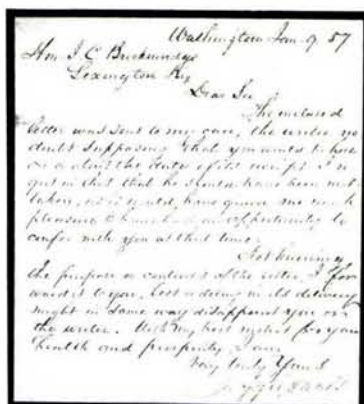 Washington Jan. 9. 57
Hon. J. C. Breckinridge
Lexington Ky.
Dear Sir
The enclosed
letter was sent to my care, the writer no
doubt supposing that you would be here
on or about the date of its receipt. I re-
gret that he should have been mis-
taken, as it would have given me much
pleasure to have had an opportunity to
confer with you at that time.
Not knowing
the purpose or contents of the letter, I for-
ward it to you, lest a delay in its delivery
might in some way disappoint you or
the writer. With my best wishes for your
health and prosperity, I am
Very truly Yours